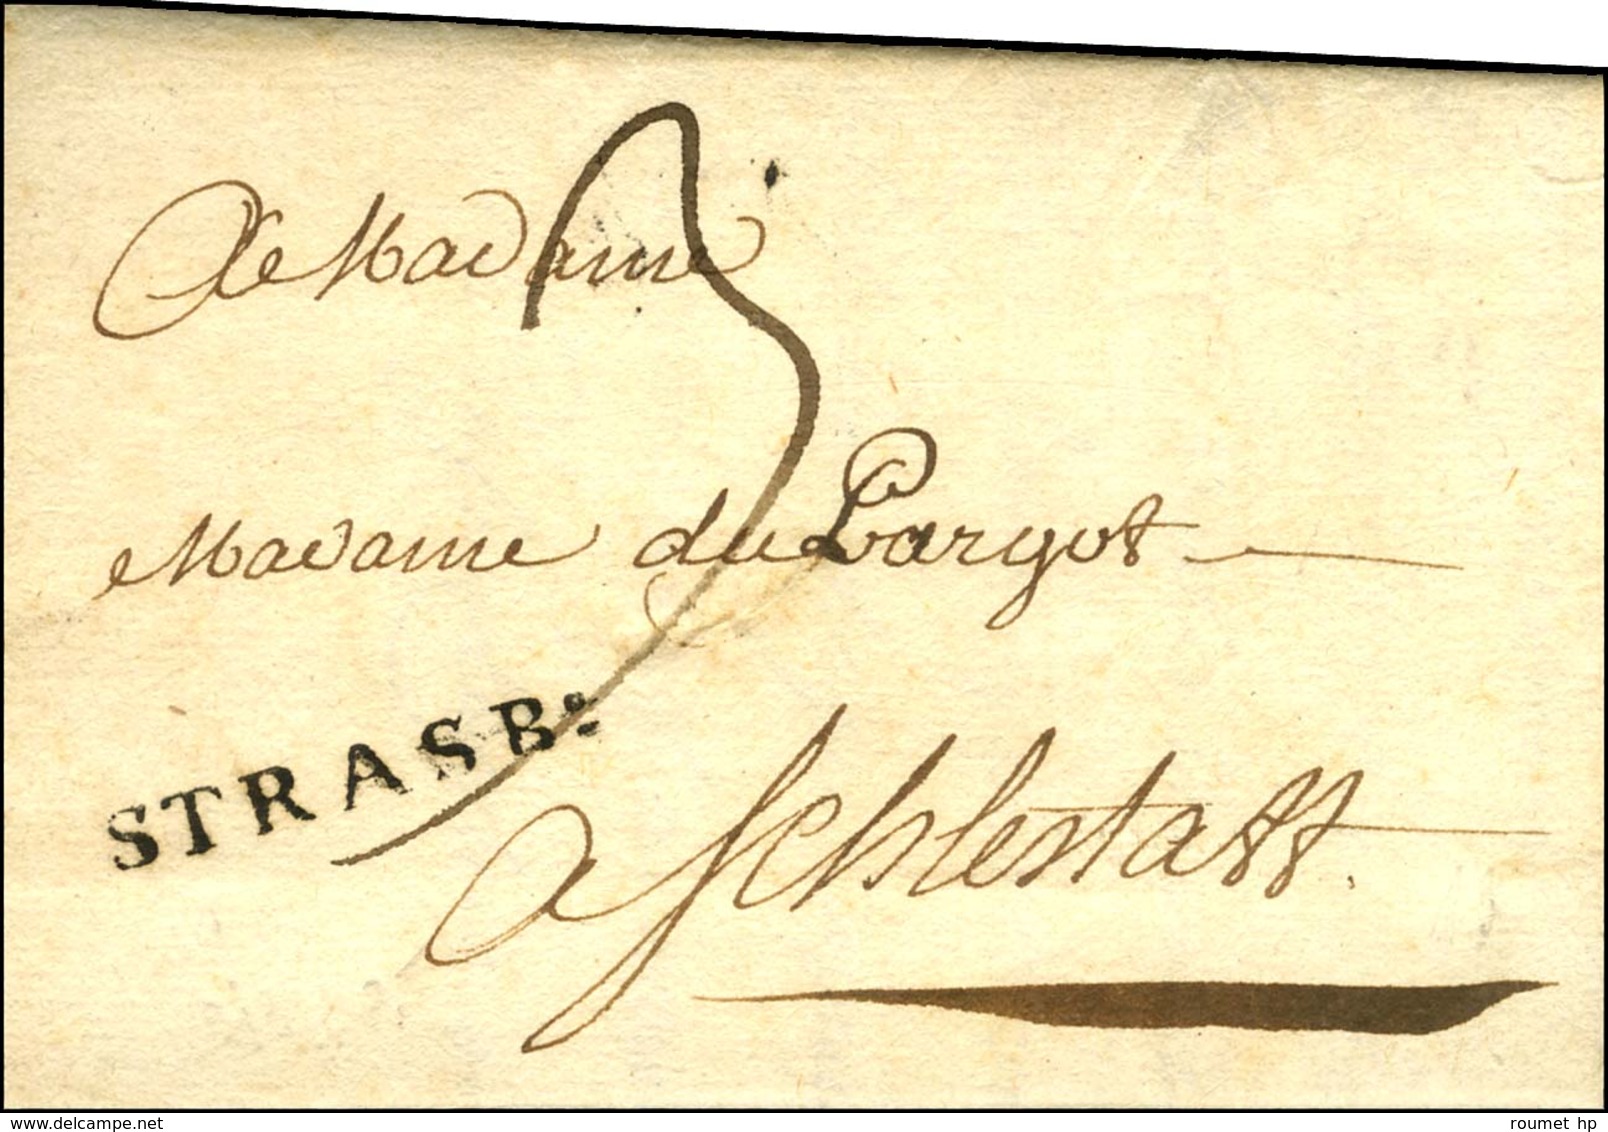 A Madame
Madame du Pargot
STRASB.
a schlestatt.
delcampe.net
roumet hp